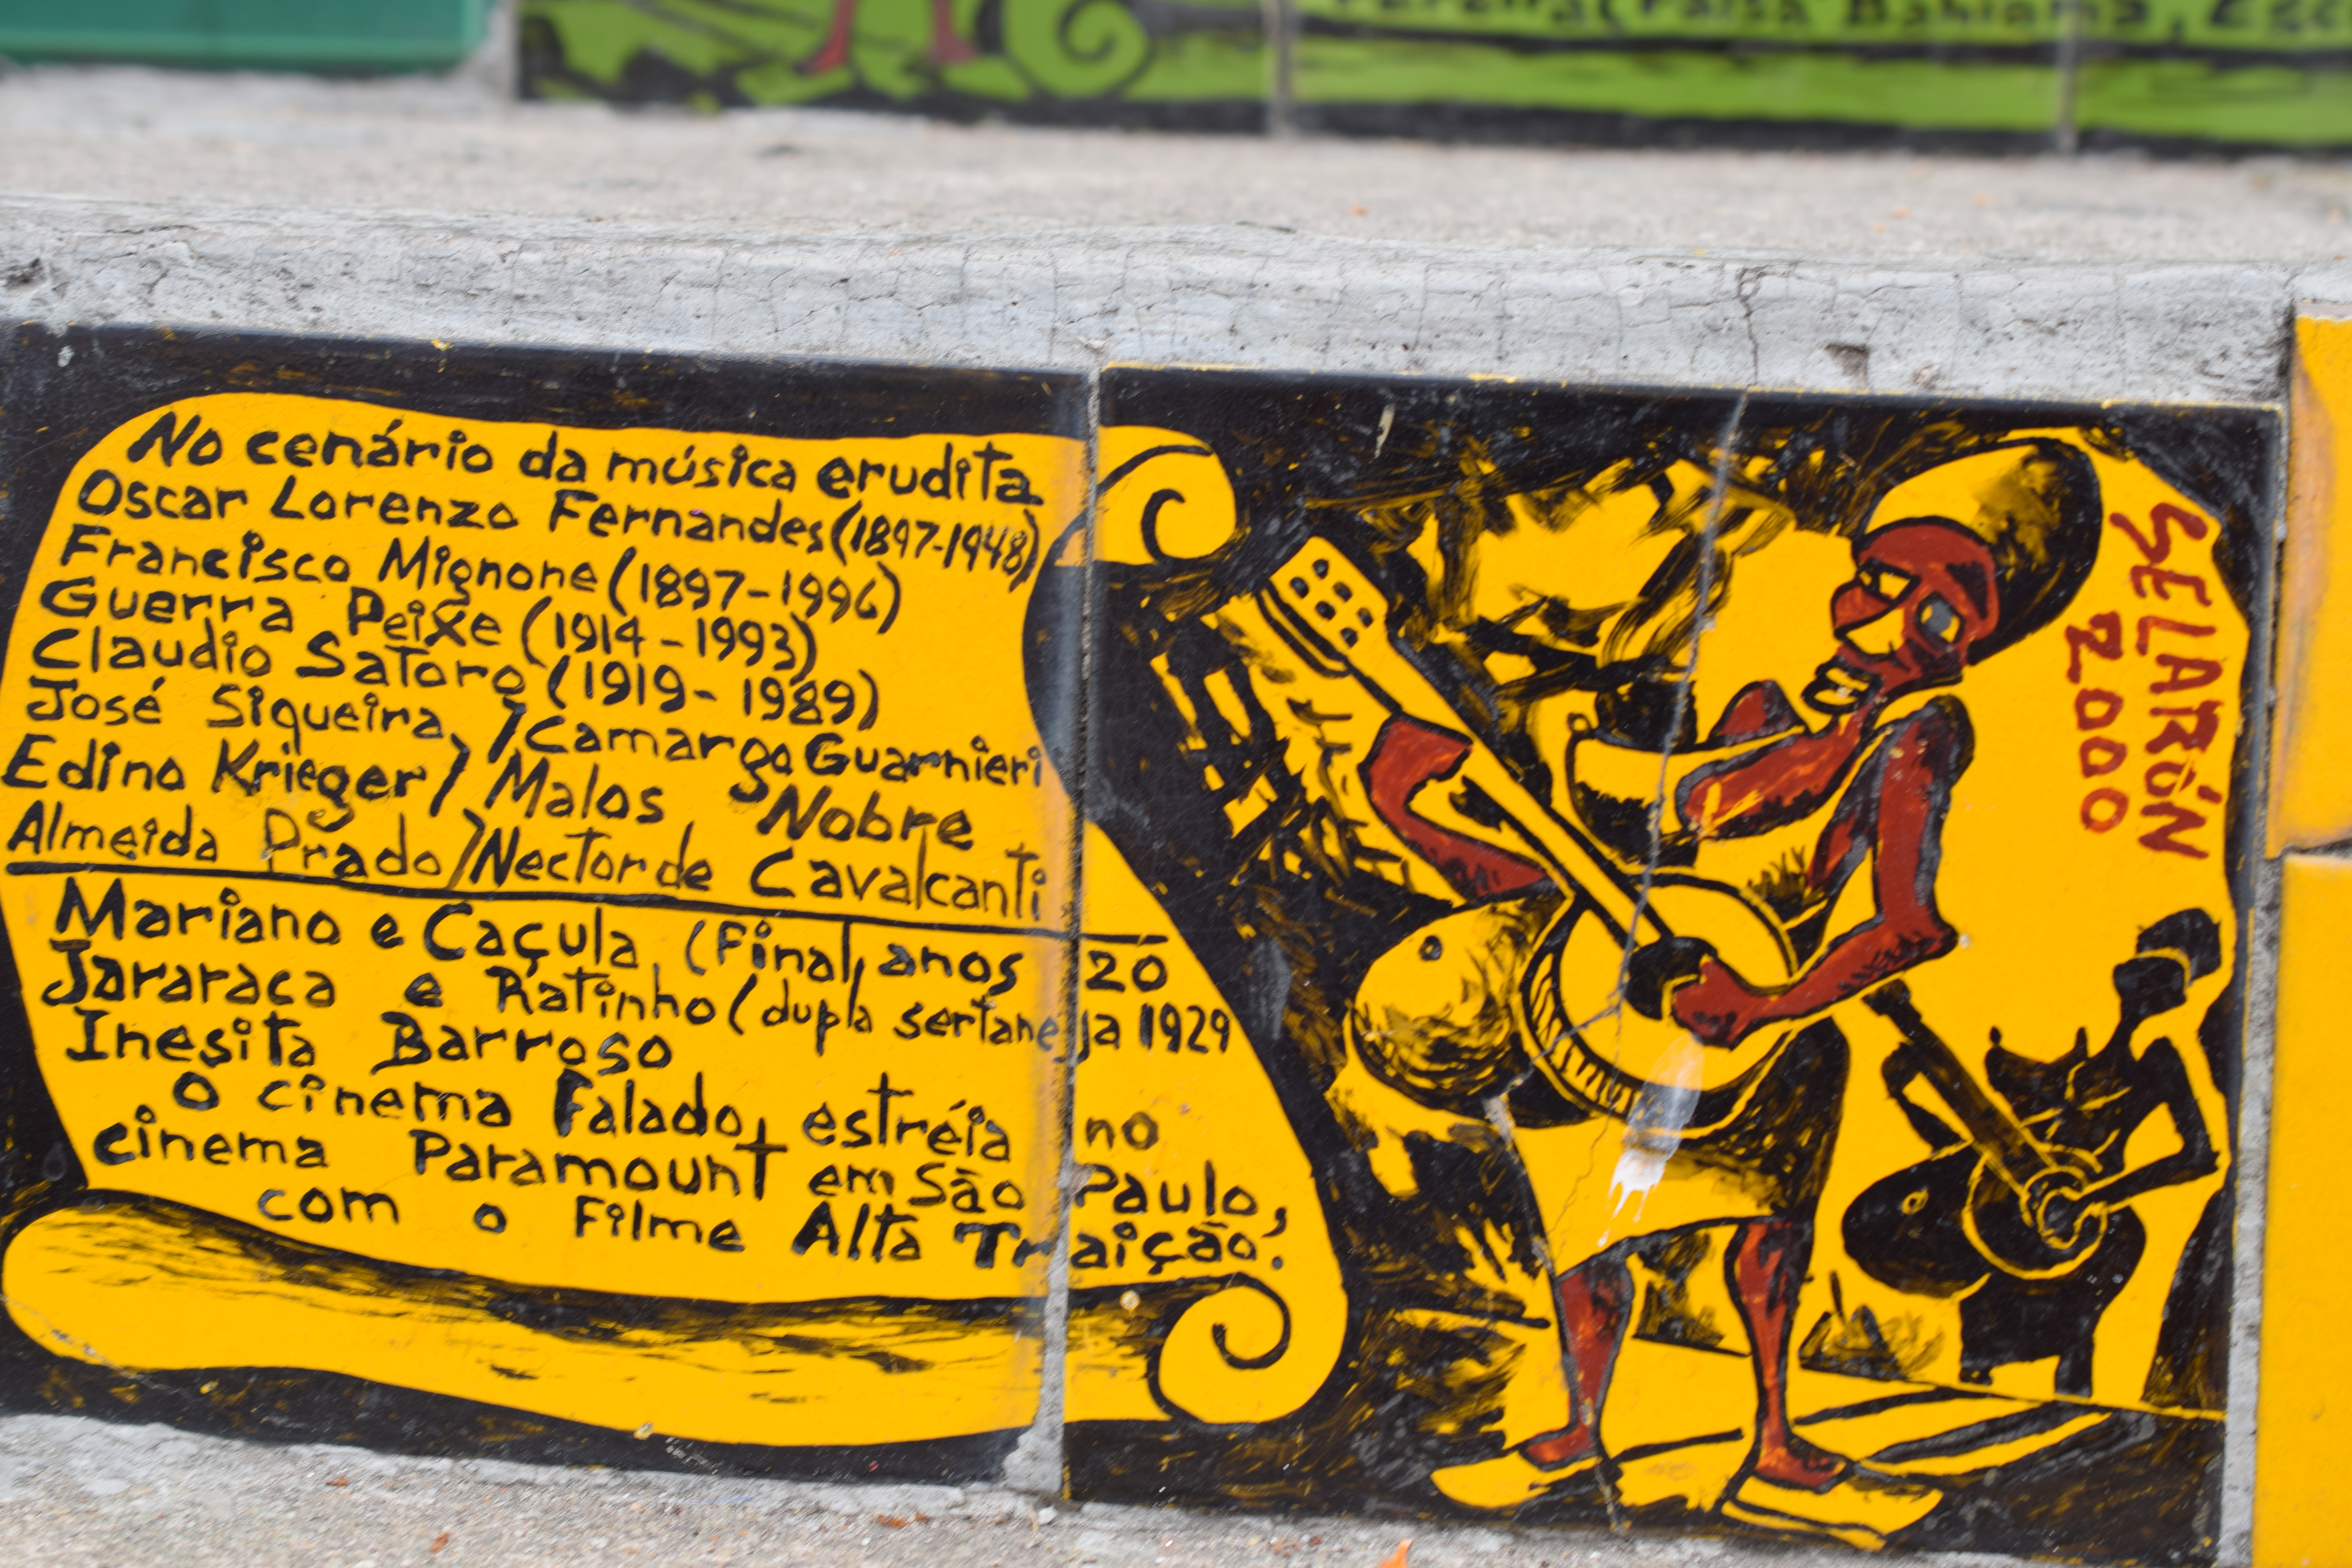 Bahiana, Esc
No cenário da música erudita
Oscar Lorenzo Fernandes (1897-1948)
Francisco Mignone (1897-1996)
Guerra Peixe (1914-1993)
Claudio Satoro (1919-1989)
José Siqueira, / Camargo Guarnieri
Edino Krieger / Malos Nobre
Almeida Prado / Nector de Cavalcanti
Mariano e Caçula (Final, anos 20
Jararaca e Ratinho (dupla sertaneja 1929
Inesita Barroso
O cinema Falado, estréia no
cinema Paramount em São Paulo,
com o Filme Alta Traição.
SELARÓN
2000